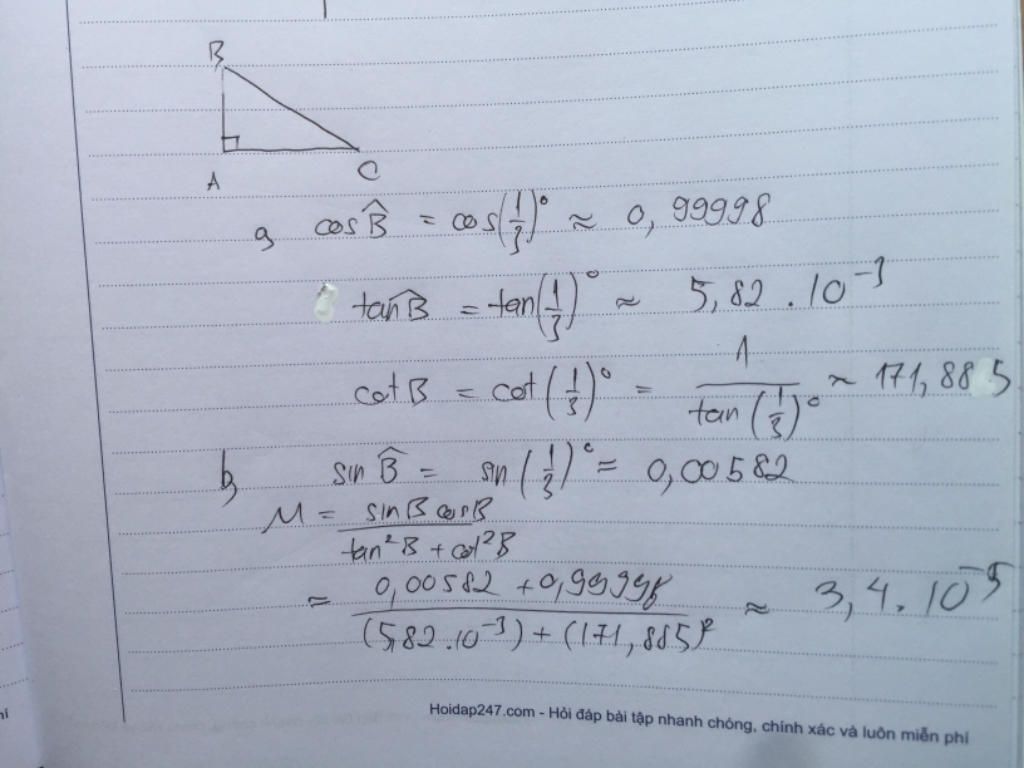 B
A
C
a, cosB̂ = cos(1/3)° ≈ 0,99998
tanB̂ = tan(1/3)° ≈ 5,82 . 10⁻³
cotB = cot(1/3)° = 1/tan(1/3)° ≈ 171,885
b, sinB̂ = sin(1/3)° = 0,00582
M = sinB cosB / tan²B + cot²B
= 0,00582 + 0,99998 / (5,82.10⁻³) + (171,885)² ≈ 3,4.10⁻⁵
Hoidap247.com - Hỏi đáp bài tập nhanh chóng, chính xác và luôn miễn phí